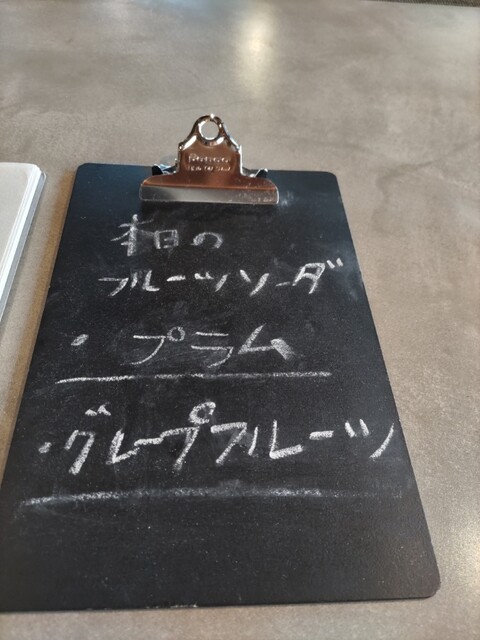 本日の
フルーツソーダ
・プラム
・グレープフルーツ